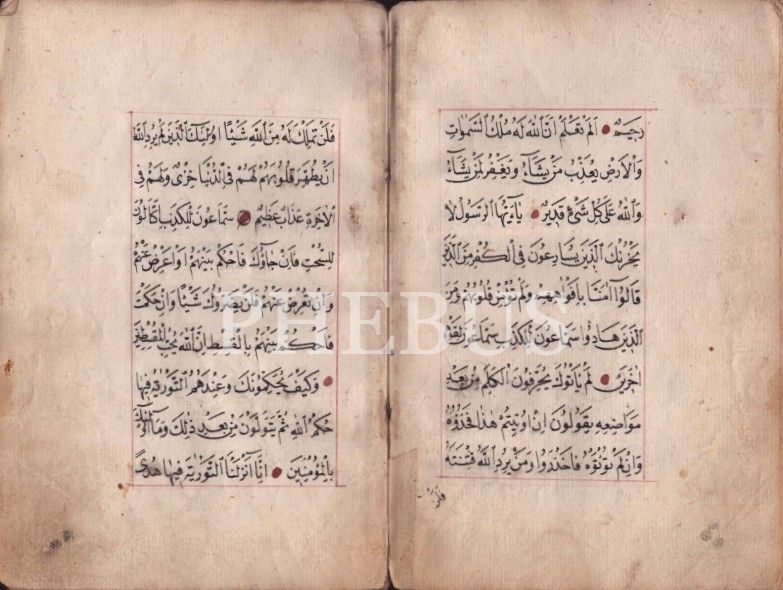 رَحِيمٌ اَلَمْ تَعْلَمْ اَنَّ اللّٰهَ لَهُ مُلْكُ السَّمٰوَاتِ
وَالْاَرْضِ يُعَذِّبُ مَنْ يَشَٓاءُ وَيَغْفِرُ لِمَنْ يَشَٓاءُ
وَاللّٰهُ عَلٰى كُلِّ شَىْءٍ قَدِيرٌ يَٓا اَيُّهَا الرَّسُولُ لَا
يَحْزُنْكَ الَّذِينَ يُسَارِعُونَ فِى الْكُفْرِ مِنَ الَّذِينَ
قَالُٓوا اٰمَنَّا بِاَفْوَاهِهِمْ وَلَمْ تُؤْمِنْ قُلُوبُهُمْ وَمِنَ
الَّذِينَ هَادُوا سَمَّاعُونَ لِلْكَذِبِ سَمَّاعُونَ لِقَوْمٍ
اٰخَرِينَ لَمْ يَاْتُوكَ يُحَرِّفُونَ الْكَلِمَ مِنْ بَعْدِ
مَوَاضِعِهِ يَقُولُونَ اِنْ اُو۫تِيتُمْ هٰذَا فَخُذُوهُ
وَاِنْ لَمْ تُؤْتَوْهُ فَاحْذَرُوا وَمَنْ يُرِدِ اللّٰهُ فِتْنَتَهُ
فَلَنْ
فَلَنْ تَمْلِكَ لَهُ مِنَ اللّٰهِ شَيْئًا اُو۬لٰٓئِكَ الَّذِينَ لَمْ يُرِدِ اللّٰهُ
اَنْ يُطَهِّرَ قُلُوبَهُمْ لَهُمْ فِى الدُّنْيَا خِزْىٌ وَلَهُمْ فِى
الْاٰخِرَةِ عَذَابٌ عَظِيمٌ سَمَّاعُونَ لِلْكَذِبِ اَكَّالُونَ
لِلسُّحْتِ فَاِنْ جَٓاؤُ۫كَ فَاحْكُمْ بَيْنَهُمْ اَوْ اَعْرِضْ عَنْهُمْ
وَاِنْ تُعْرِضْ عَنْهُمْ فَلَنْ يَضُرُّوكَ شَيْئًا وَاِنْ حَكَمْتَ
فَاحْكُمْ بَيْنَهُمْ بِالْقِسْطِ اِنَّ اللّٰهَ يُحِبُّ الْمُقْسِطِينَ
وَكَيْفَ يُحَكِّمُونَكَ وَعِنْدَهُمُ التَّوْرٰيةُ فِيهَا
حُكْمُ اللّٰهِ ثُمَّ يَتَوَلَّوْنَ مِنْ بَعْدِ ذٰلِكَ وَمَٓا اُو۬لٰٓئِكَ
بِالْمُؤْمِنِينَ اِنَّٓا اَنْزَلْنَا التَّوْرٰيةَ فِيهَا هُدًى
PHEBUS